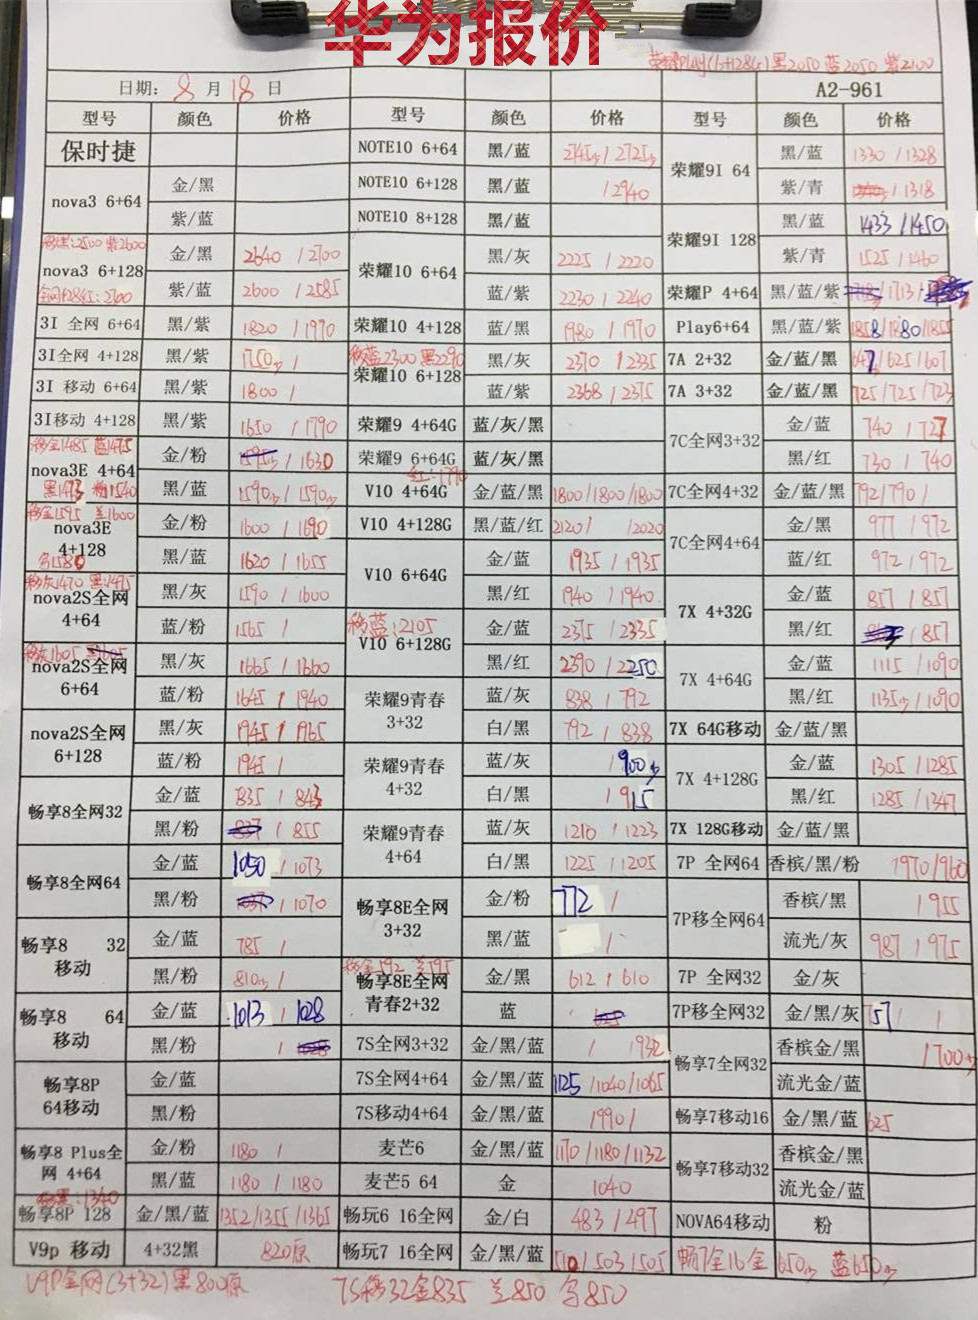 华为报价
荣耀Play(6+128G)黑2050 蓝2050 紫2100
日期: 8 月 18 日 A2-961
型号 颜色 价格 型号 颜色 价格 型号 颜色 价格
保时捷 NOTE10 6+64 黑/蓝 荣耀9I 64 黑/蓝 1330 / 1328
nova3 6+64 金/黑 NOTE10 6+128 黑/蓝 / 2940 紫/青 / 1318
紫/蓝 NOTE10 8+128 黑/蓝 荣耀9I 128 黑/蓝 1433 / 1450
移黑:2500 紫2600
nova3 6+128 金/黑 2640 / 2700 荣耀10 6+64 黑/灰 2225 / 2220 紫/青 1525 / 1460
紫/蓝 2600 / 2585 蓝/紫 2230 / 2240 荣耀P 4+64 黑/蓝/紫 / 1713 /
3I 全网 6+64 黑/紫 1820 / 1970 荣耀10 4+128 蓝/黑 1980 / 1970 Play6+64 黑/蓝/紫 1858 / 1880 / 1855
移蓝2300 黑2290
3I全网 4+128 黑/紫 1750 / 荣耀10 6+128 黑/灰 2370 / 2335 7A 2+32 金/蓝/黑 647 / 625 / 607
3I 移动 6+64 黑/紫 1800 / 蓝/紫 2368 / 2375 7A 3+32 金/蓝/黑 725 / 725 / 723
3I移动 4+128 黑/紫 1650 / 1790 荣耀9 4+64G 蓝/灰/黑 7C全网3+32 金/蓝 740 / 727
移金1485 蓝1475
nova3E 4+64 金/粉 / 1630 荣耀9 6+64G 蓝/灰/黑 黑/红 730 / 740
黑1473 粉1540 红:1790
黑/蓝 1590 / 1590 V10 4+64G 金/蓝/黑 1800 / 1800 / 1800 7C全网4+32 金/蓝/黑 792 / 790 /
移金1595 兰1600
nova3E 4+128 金/粉 1600 / 1690 V10 4+128G 黑/蓝/红 2120 / / 2020 7C全网4+64 金/黑 977 / 972
黑/蓝 1620 / 1655 V10 6+64G 金/蓝 1935 / 1935 蓝/红 972 / 972
移灰1470 黑1475
nova2S全网 4+64 黑/灰 1590 / 1600 黑/红 1940 / 1940 7X 4+32G 金/蓝 857 / 857
移蓝:2105
蓝/粉 1565 / V10 6+128G 金/蓝 2375 / 2335 黑/红 / 857
移灰1605
nova2S全网 6+64 黑/灰 1665 / 1660 黑/红 2390 / 2250 7X 4+64G 金/蓝 1115 / 1090
蓝/粉 1645 / 1940 荣耀9青春 3+32 蓝/灰 838 / 792 黑/红 1135 / 1090
nova2S全网 6+128 黑/灰 1945 / 1965 白/黑 792 / 838 7X 64G移动 金/蓝/黑
蓝/粉 1945 / 荣耀9青春 4+32 蓝/灰 / 900 7X 4+128G 金/蓝 1305 / 1285
畅享8全网32 金/蓝 835 / 843 白/黑 / 915 黑/红 1285 / 1347
黑/粉 / 855 荣耀9青春 4+64 蓝/灰 1210 / 1223 7X 128G移动 金/蓝/黑
畅享8全网64 金/蓝 1050 / 1073 白/黑 1225 / 1205 7P 全网64 香槟/黑/粉 1970 / 960
黑/粉 / 1070 畅享8E全网 3+32 金/粉 772 / 7P移全网64 香槟/黑 1955
畅享8 32 移动 金/蓝 785 / 黑/蓝 / 流光/灰 987 / 975
移金592 兰595
黑/粉 810 / 畅享8E全网 青春2+32 金/黑 612 / 610 7P 全网32 金/灰
畅享8 64 移动 金/蓝 1013 / 1028 蓝 7P移全网32 金/黑/灰 757 /
黑/粉 / 7S全网3+32 金/黑/蓝 / 畅享7全网32 香槟金/黑 1700
畅享8P 64移动 金/蓝 7S全网4+64 金/黑/蓝 1125 / 1040 / 1065 流光金/蓝
黑/粉 7S移动4+64 金/黑/蓝 畅享7移动16 金/黑/蓝 625
畅享8 Plus全网 4+64 金/粉 1180 / 麦芒6 金/黑/蓝 1170 / 1180 / 1132 畅享7移动32 香槟金/黑
黑/蓝 1180 / 1180 麦芒5 64 金 1040 流光金/蓝
畅享8P 128 金/黑/蓝 1352 / 1355 / 1365 畅玩6 16全网 金/白 483 / 497 NOVA64移动 粉
V9p 移动 4+32黑 820原 畅玩7 16全网 金/黑/蓝 510 / 503 / 505 畅7全16金 650 蓝650
V9P全网(3+32)黑800原 7S移32金835 兰850